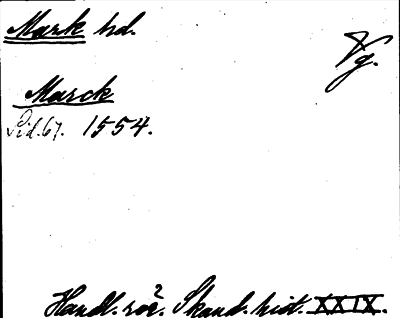 Mark hd.
Vg.
Marck
Sid. 67. 1554.
Handl. rör. Skand. hist. XXIX.